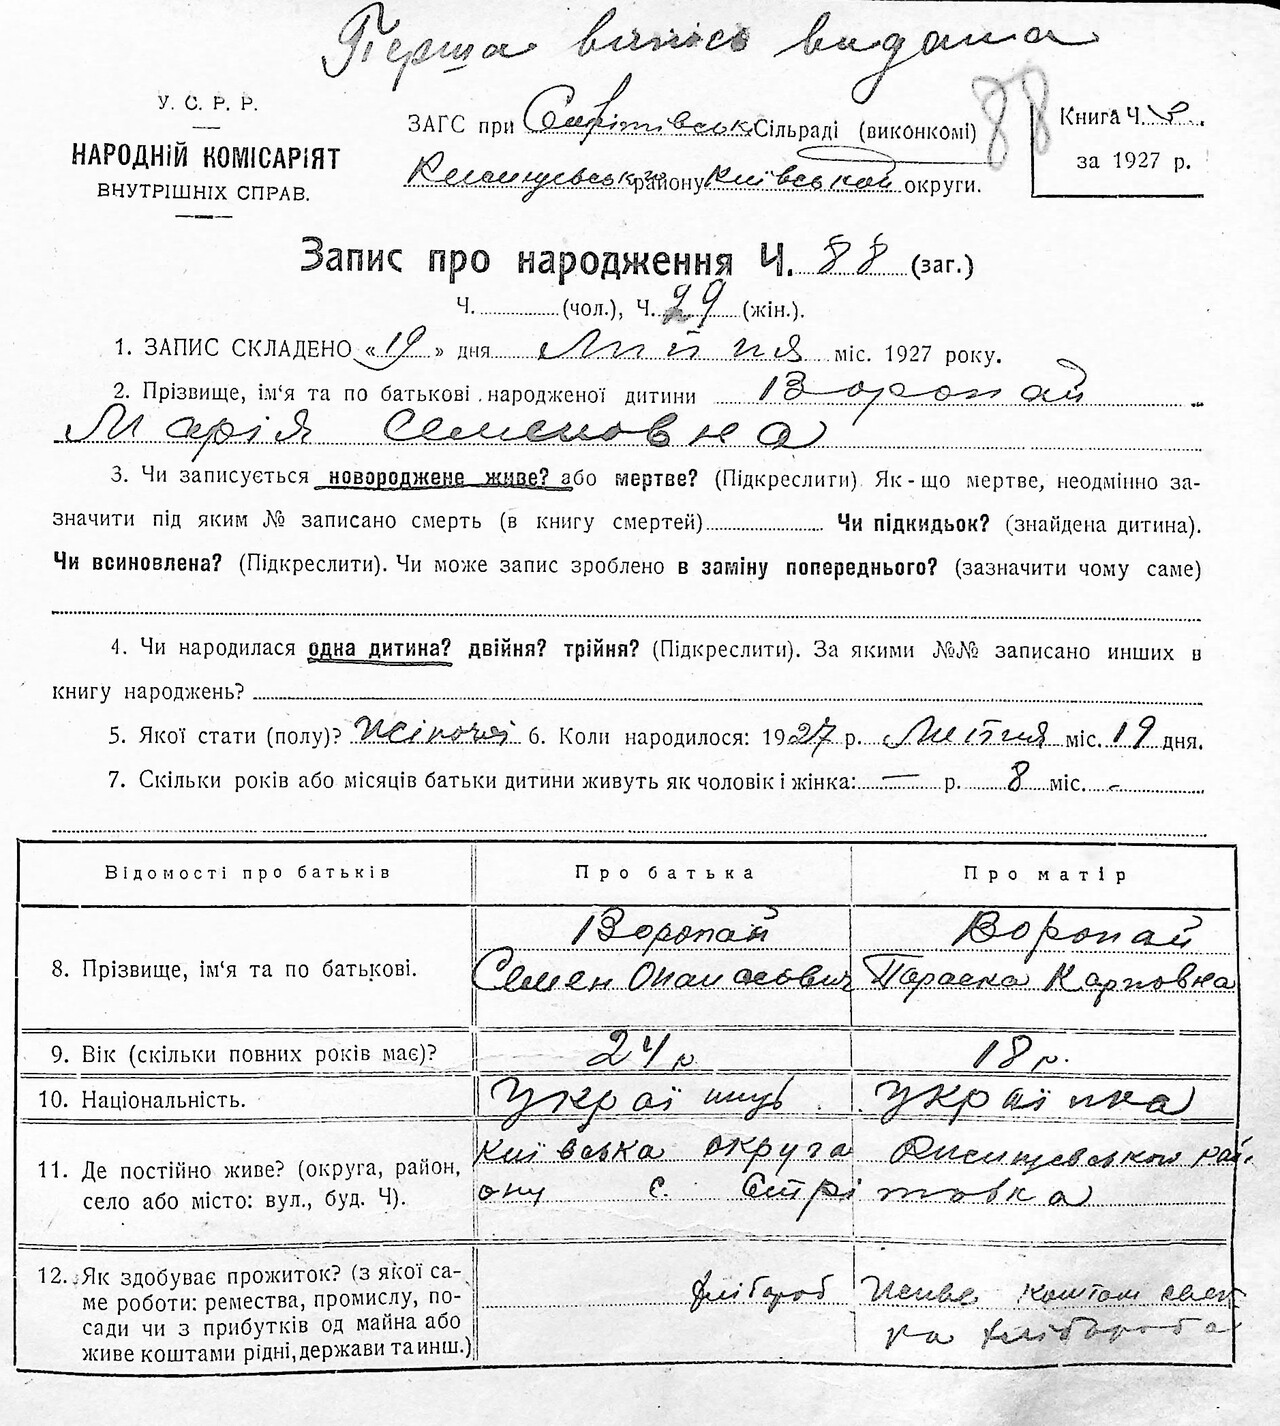 Перша випись видана
У. С. Р. Р.
НАРОДНІЙ КОМІСАРІЯТ
ВНУТРІШНІХ СПРАВ.
ЗАГС при Стрітівськ Сільраді (виконкомі)
Ржищевськ району Київської округи.
88
Книга Ч.
за 1927 р.
Запис про народження Ч. 88 (заг.)
Ч. (чол.), Ч. 29 (жін.).
1. ЗАПИС СКЛАДЕНО «19» дня Липня міс. 1927 року.
2. Прізвище, ім‘я та по батькові народженої дитини Воропай
Марія Семеновна
3. Чи записується новороджене живе? або мертве? (Підкреслити) Як-що мертве, неодмінно за-
значити під яким № записано смерть (в книгу смертей) Чи підкидьок? (знайдена дитина).
Чи всиновлена? (Підкреслити). Чи може запис зроблено в заміну попереднього? (зазначити чому саме)
4. Чи народилася одна дитина? двійня? трійня? (Підкреслити). За якими №№ записано инших в
книгу народжень?
5. Якої стати (полу)? Жіночої 6. Коли народилося: 1927 р. Липня міс. 19 дня.
7. Скільки років або місяців батьки дитини живуть як чоловік і жінка: — р. 8 міс. -
Відомості про батьків Про батька Про матір
8. Прізвище, ім‘я та по батькові.
Воропай
Семен Опанасович
Воропай
Параска Карповна
9. Вік (скільки повних років має)? 24 р. 18 р.
10. Національність. Україннць Українка
11. Де постійно живе? (округа, район,
село або місто: вул., буд. Ч).
Київська округа Ржищевського рай-
ону с. Стрітовка
12. Як здобуває прожиток? (з якої са-
ме роботи: ремества, промислу, по-
сади чи з прибутків од майна або
живе коштами рідні, держави та инш.)
хлібороб
Живе коштом свек
ра хлібороба